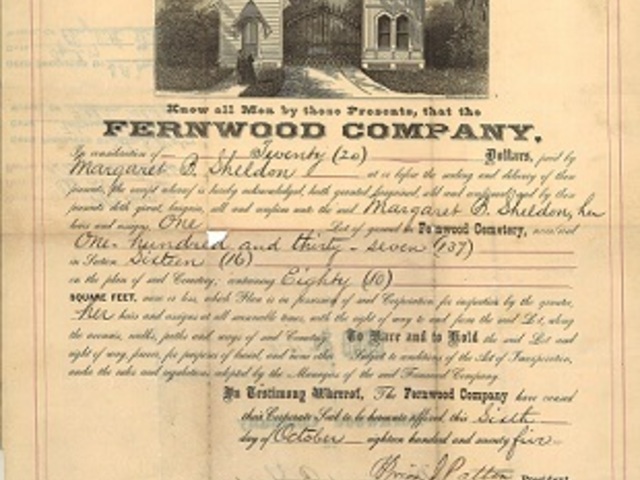 Know all Men by these Presents, that the
FERNWOOD COMPANY.
In consideration of Twenty (20) Dollars, paid by
Margaret B. Sheldon at or before the sealing and delivery of these
presents, the receipt whereof is hereby acknowledged, hath granted, bargained, sold and confirmed and by these
presents doth grant, bargain, sell and confirm unto the said Margaret B. Sheldon, her
heirs and assigns, One Lot of ground in Fernwood Cemetery, numbered
One-hundred and thirty-seven (137)
in Section Sixteen (16)
on the plan of said Cemetery, containing Eighty (80)
SQUARE FEET, more or less, which Plan is in possession of said Corporation for inspection by the grantee,
her heirs and assigns at all reasonable times, with the right of way to and from the said Lot, along
the avenues, walks, paths and ways of said Cemetery. To Have and to Hold the said Lot and
right of way, forever, for purposes of burial, and none other. Subject to conditions of the Act of Incorporation,
and the rules and regulations adopted by the Managers of the said Company.
In Testimony Whereof, The Fernwood Company have caused
their Corporate Seal to be hereunto affixed, this Sixth
day of October eighteen hundred and ninety five
Patton President